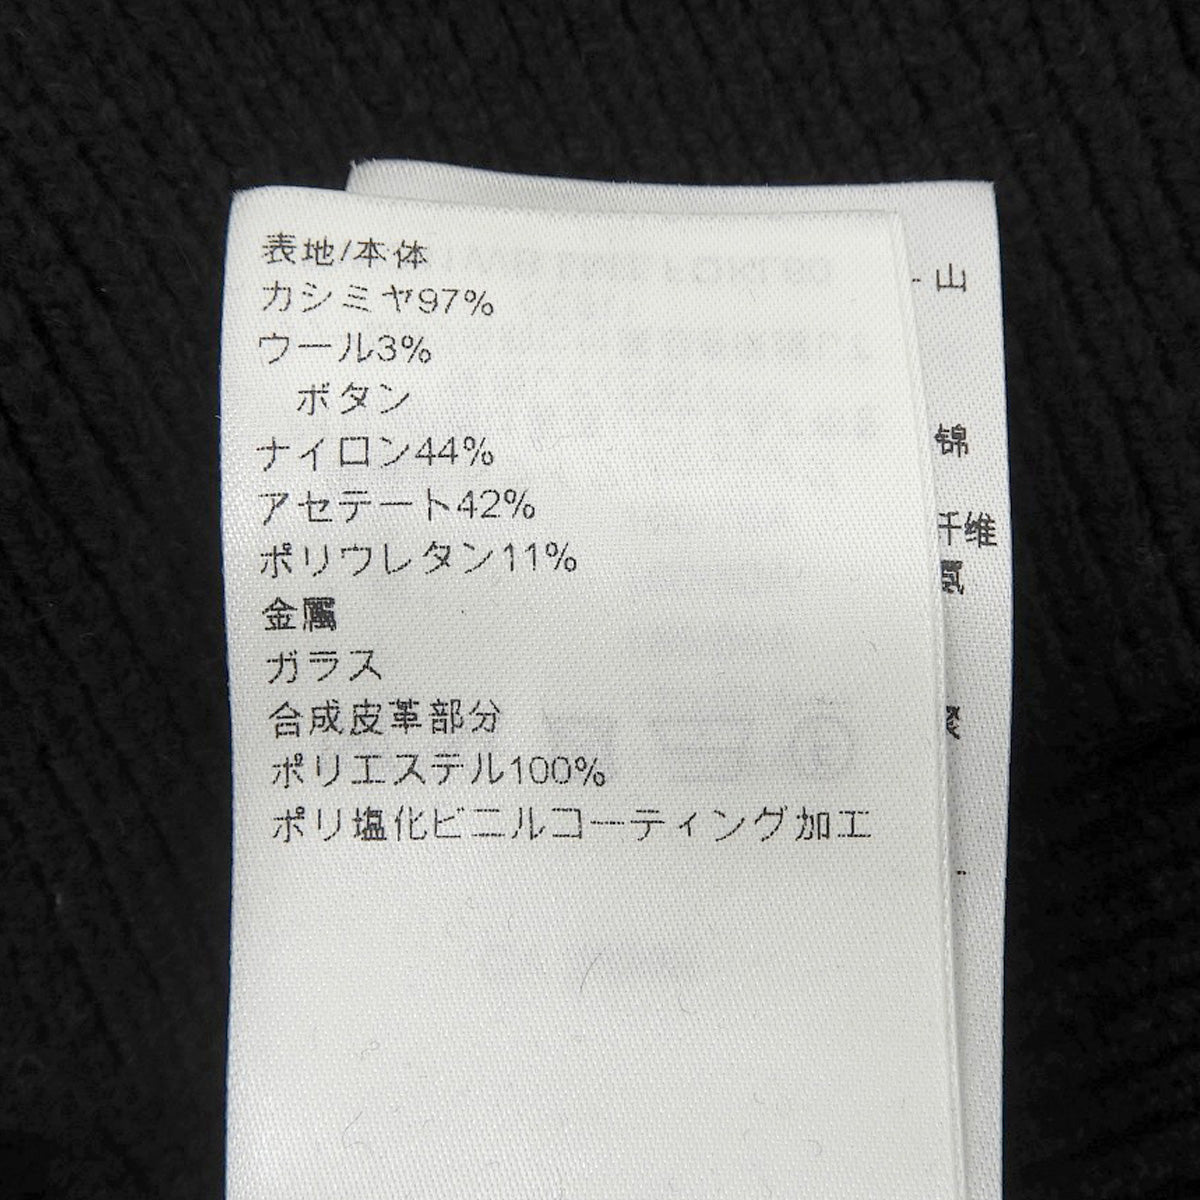 表地/本体
カシミヤ97%
ウール3%
ボタン
ナイロン44%
アセテート42%
ポリウレタン11%
金属
ガラス
合成皮革部分
ポリエステル100%
ポリ塩化ビニルコーティング加工
山
锦
纤维
氨
聚